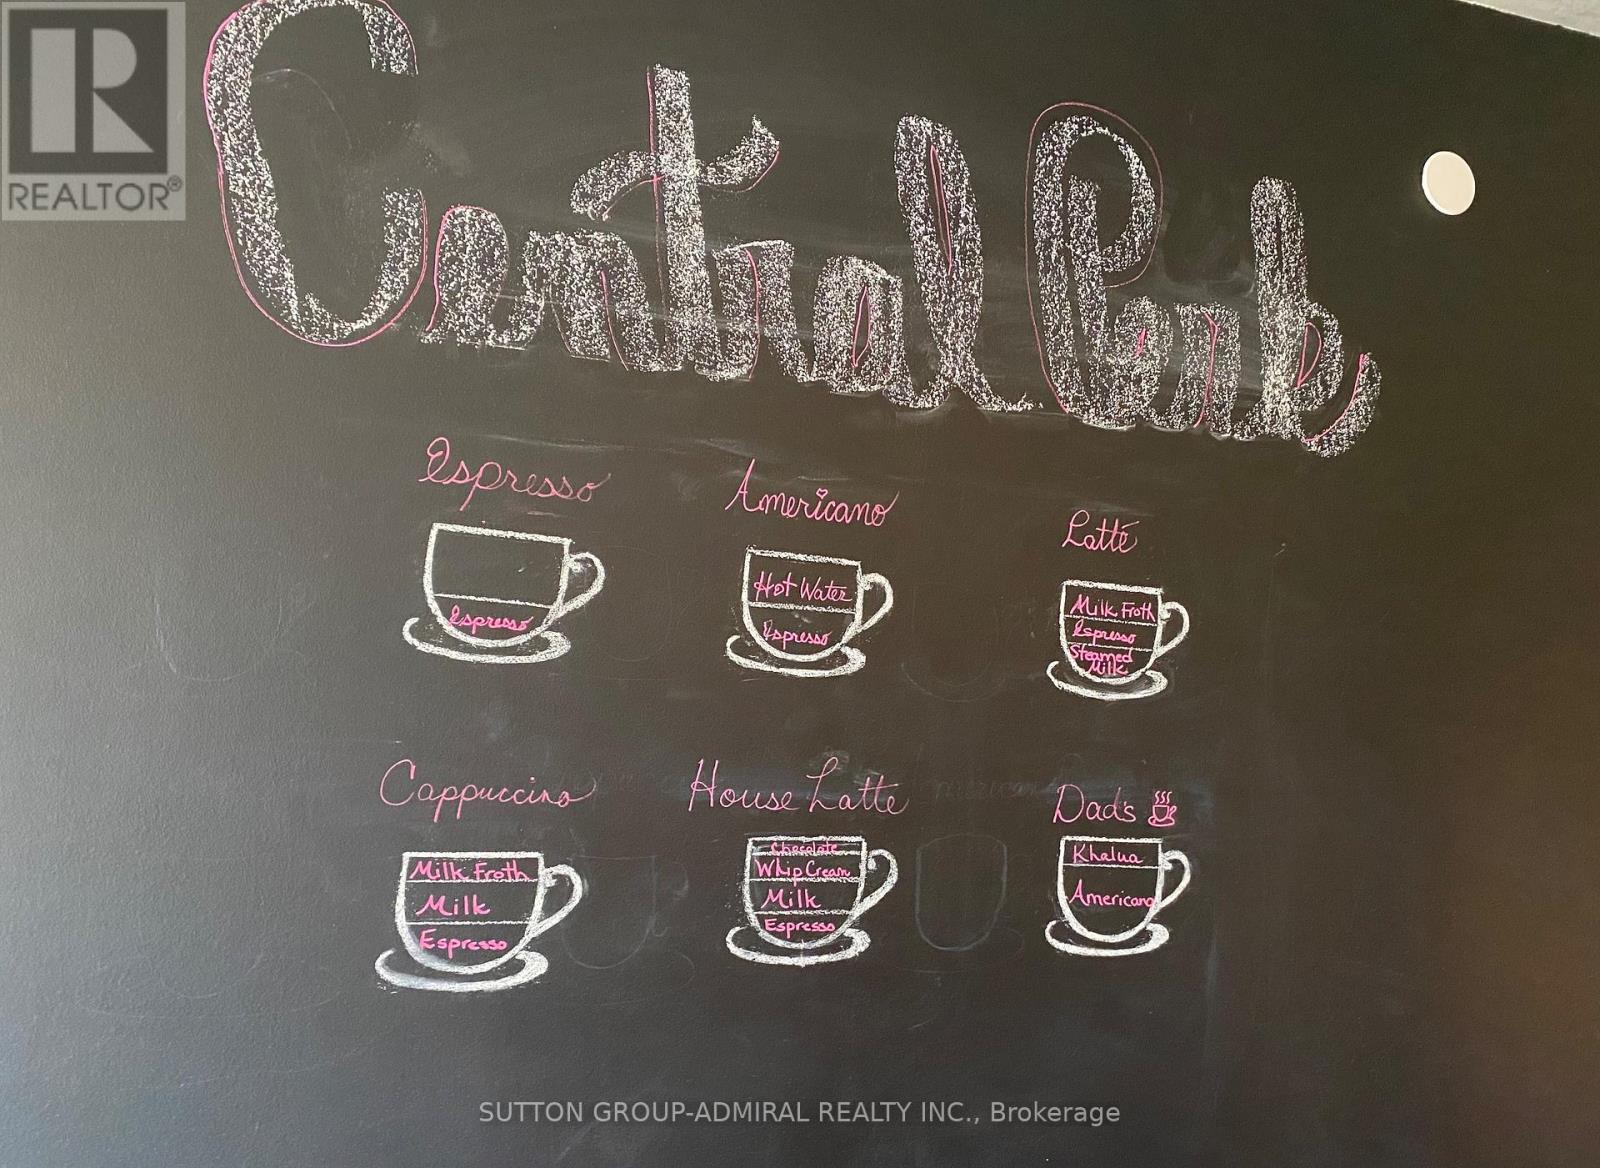 R
REALTOR®
Central Perk
Espresso
Espresso
Americano
Hot Water
Espresso
Latté
Milk Froth
Espresso
Steamed
Milk
Cappuccino
Milk Froth
Milk
Espresso
House Latte
Chocolate
Whip Cream
Milk
Espresso
Dad's
Khalua
Americano
SUTTON GROUP-ADMIRAL REALTY INC., Brokerage